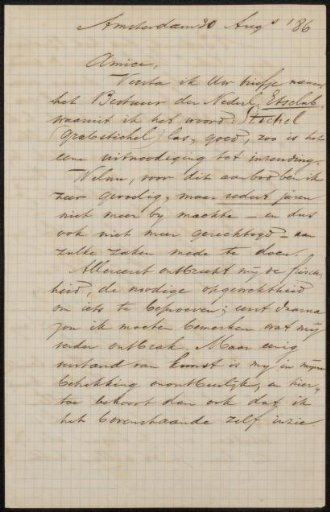 Amsterdam 30 Aug. '86
Amice,
ik Uw briefje namens
het Bestuur der Nederl. Etsclub
waaruit ik het woord Etschel
(gratistichel) las, goed, zoo is het
eene uitnoodiging tot inzending.
Welnu, voor dit aanbod ben ik
zeer gevoelig, maar sedert jaren
niet meer by machte – en dus
ook niet meer gerechtigd – aan
zulke zaken mede te doen.
Allereerst ontbreekt mij de
heid, de noodige opgewektheid
om iets te beproeven; eerst daarna
zou ik moeten bemerken wat mij
verder ontbrak. Maar eenig
verstand van kunst is mij in mijne
betrekking onontbeerlijk, en hier-
toe behoort dan ook dat ik
het bovenstaande zelf inzie